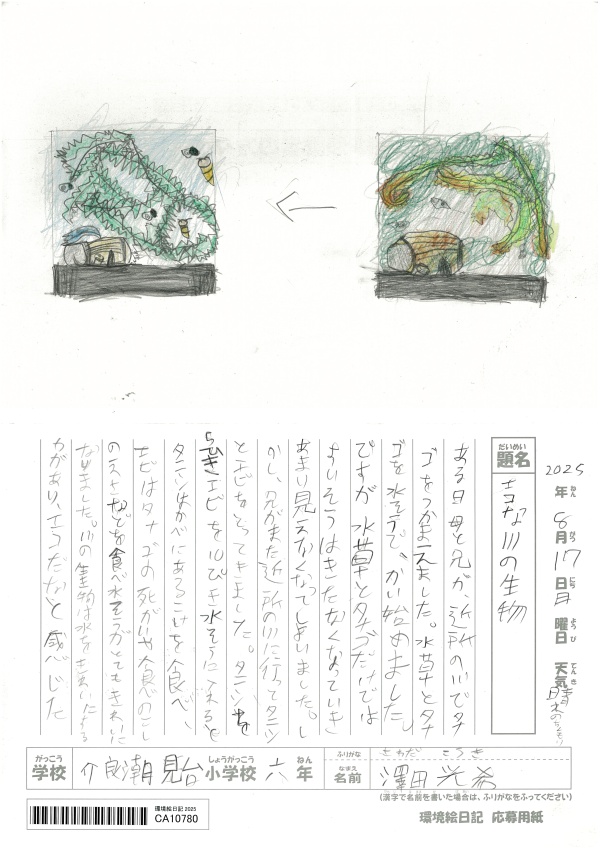 2025年8月17日月曜日 天気晴れのちくもり
ねん がつ にち ようび てんき
だいめい
題名
エコな川の生物
ある日母と兄が、近所の川でタナ
ゴをつかまえました。水草とタナ
ゴを水そうで、かい始めました。
ですが水草とタナゴだけでは
すいそうはきたなくなっていき
あまり見えなくなってしまいました。し
かし、兄がまた近所の川に行ってタニシ
とエビをとってきました。タニシを
らひきエビを10ぴき水そうに入れると
タニシはかべにあるこけを食べ、
エビはタナゴの死がいや食べのこし
のえさなどを食べ水そうがとてもきれいに
なりました。川の生物は水をきれいにする
力があり、エコだなと感じた
がっこう
学校
介良潮見台
しょうがっこう
小学校
六
ねん
年
ふりがな
さわだ こうき
なまえ
名前
澤田光希
(漢字で名前を書いた場合は、ふりがなをふってください)
環境絵日記 2025
CA10780
環境絵日記 応募用紙